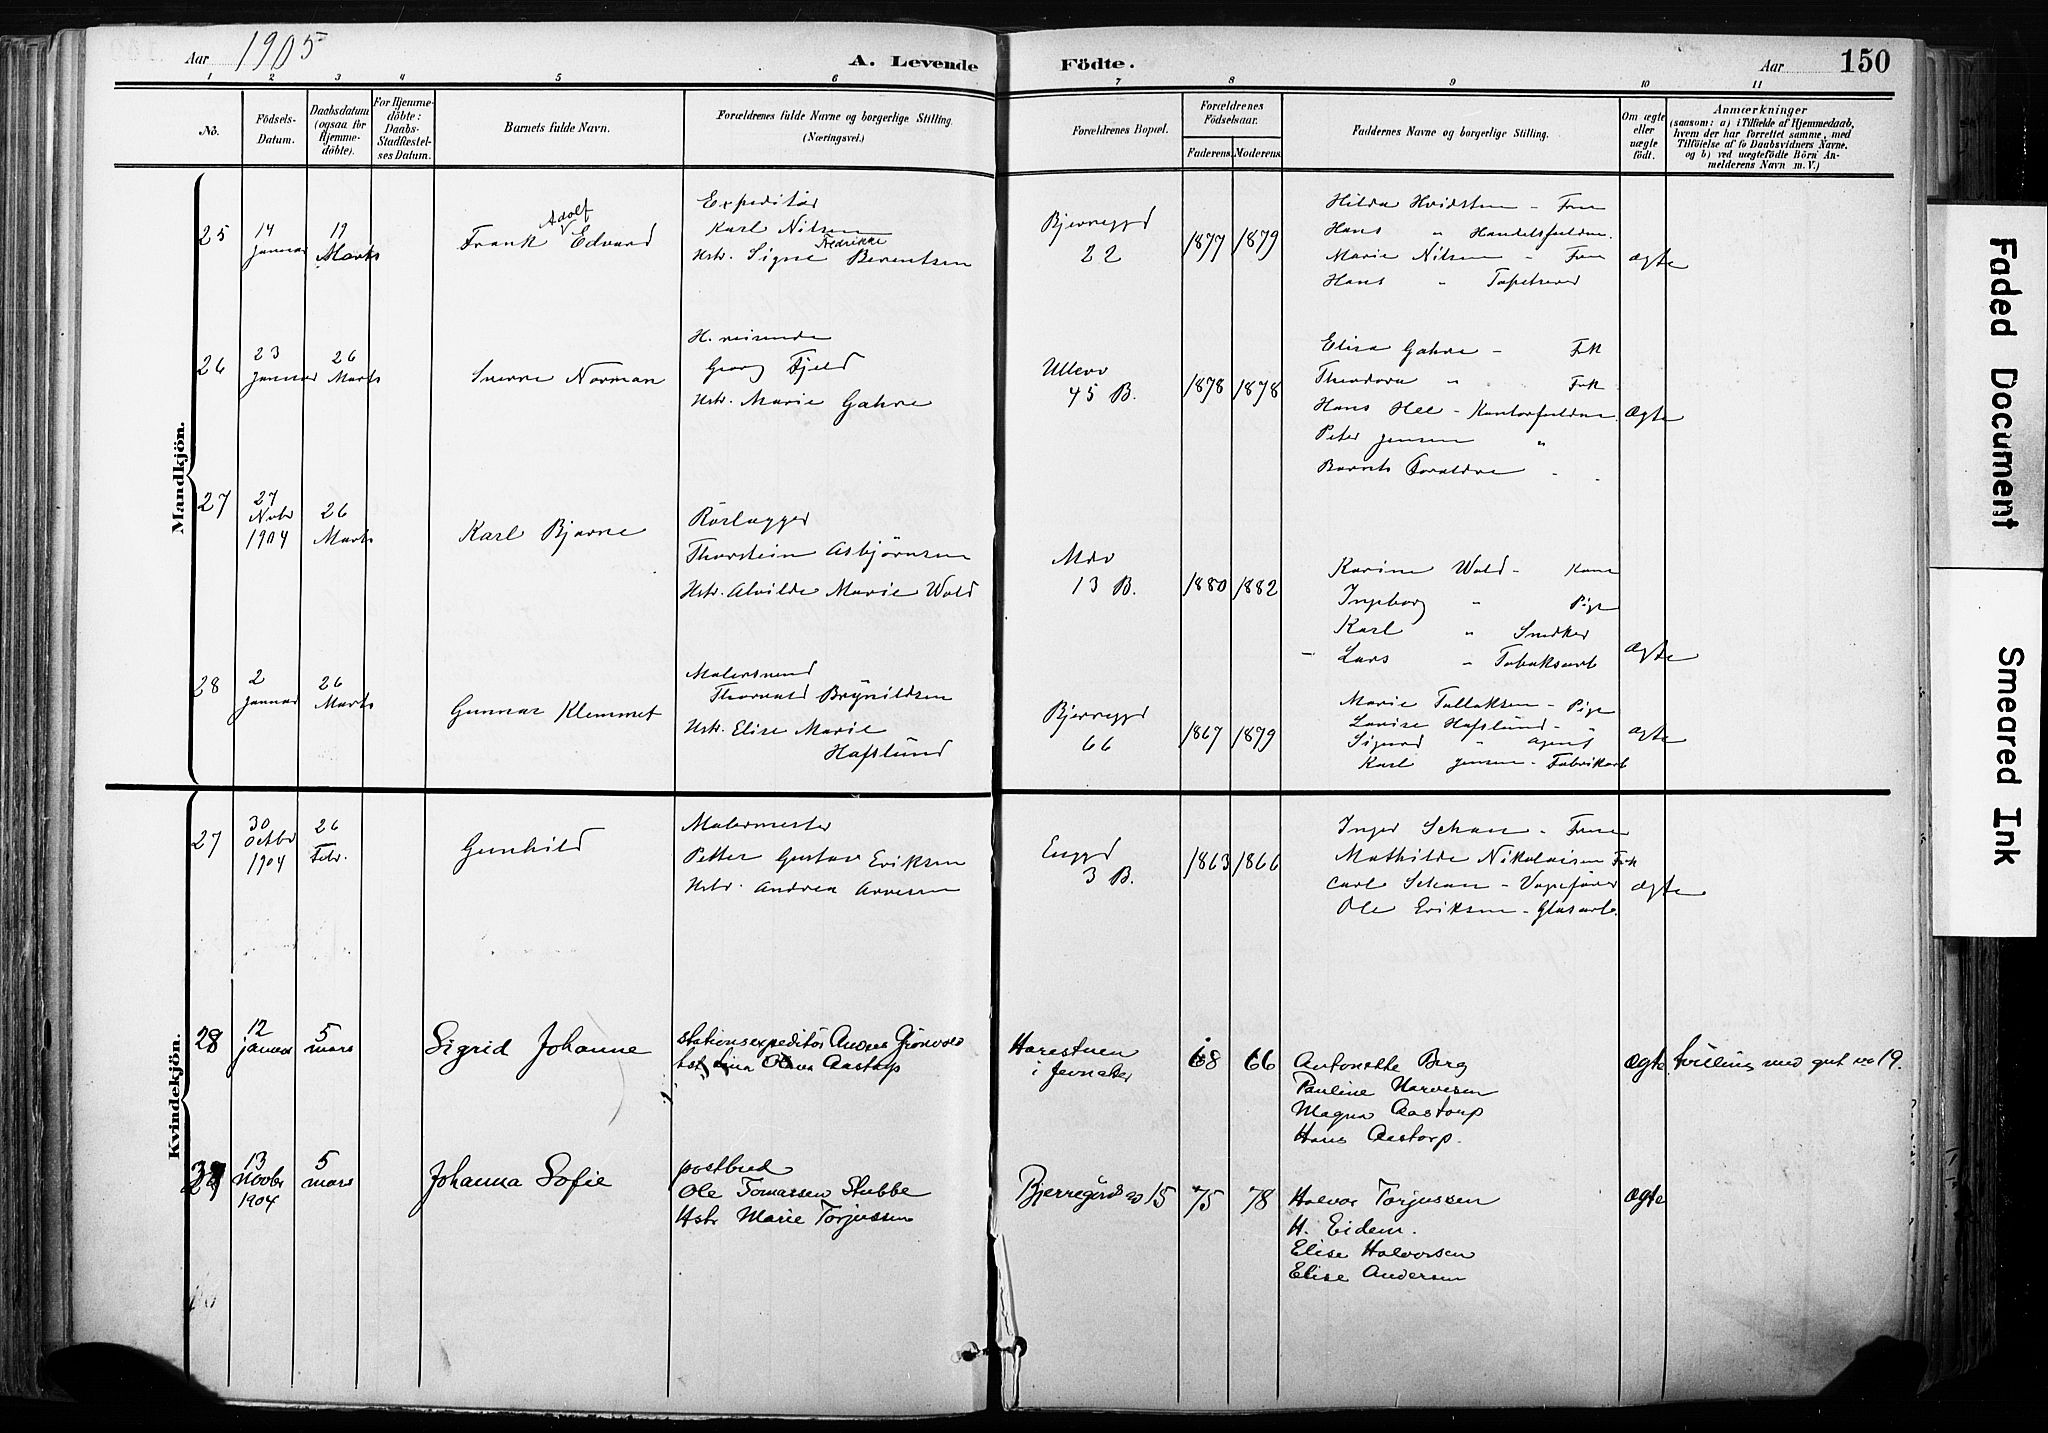 Aar 1905
A. Levende Födte.
Aar 150
1 2 3 4 5 6 7 8 9 10 11
No.
Födsels-Datum.
Daabsdatum (ogsaa för Hjemme-döbte).
For Hjemme-döbte: Daabs-Stadfæstel-ses Datum.
Barnets fulde Navn.
Forældrenes fulde Navne og borgerlige Stilling (Næringsvei.)
Forældrenes Bopæl.
Forældrenes Födselsaar.
Faderens. Moderens.
Faddernes Navne og borgerlige Stilling.
Om ægte eller uægte født.
Anmærkninger
(saasom: a) i Tilfælde af Hjemmedaab, hvem der har forrettet samme, med Tilföielse af to Daabsvidners Navne, og b) ved uægtefödte Börn An-melderens Navn m. V.)
Mandkjön.
25
14 Januar
19 Marts
Frank Adolf Edvard
Expeditör
Karl Nilsen
Hstr. Signe Fredrikke Berentsen
Bjerregd
22
1877 1879
Hilda Hvidsten - Frue
Hans " Handelsfuldm.
Marie Nilsen - Frue
Hans " Tapetserer
Ægte
26
23 Januar
26 Marts
Sverre Norman
H. reisende
Georg Fjeld
Hstr. Marie Gahre
Ullevv
45 B.
1878 1878
Elisa Gahre - Frk
Theodora " Frk
Hans Hee - Kontorfuldm.
Peter Jensen "
Barnets Foraldre
Ægte
27
27 Nvbr 1904
26 Marts
Karl Bjarne
Rörlægger
Thorstein Asbjörnsen
Hstr. Alvilde Marie Wold
13 B.
1880 1882
Karine Wold - Kone
Ingeborg " Pige
Karl " Snedker
Lars " Tobaksarb
Ægte
28
2 Januar
26 Marts
Gunnar Klemmet
Malersvend
Thorvald Brynildsen
Hstr. Elise Marie
Hafslund
Bjerregd
66
1867 1879
Marie Tollaksen - Pige
Lovise Hafslund - "
Sigurd " Agent
Karl Jensen - Fabrikarb
Ægte
Kvindekjön.
27
30 Octbr 1904
26 Febr.
Gunhild
Malermester
Petter Gustav Eriksen
Hstr. Andrea Arvesen
Enggd
3 B.
1863 1866
Inger Schau - Frue
Mathilde Nikolaisen Frk
Carl Schau - Vognfører
Ole Eriksen - Glasarb.
Ægte
28
12 januar
5 mars
Sigrid Johanne
stationsexpeditör Anders Grönvold
hst. Lina Olava Aastorp
Harestuen
i Jevnaker
68 66
Antonette Berg
Pauline Narvesen
Magna Aastorp
Hans Aastorp.
Ægte
tvilling med gut no 19.
13 Novbr 1904
5 mars
Johanna Sofie
postbud
Ole Tomassen Stubbe
Hstr Marie Torjussen
Bjerregårds 15
75 78
Halvor Torjussen
H. Eidem.
Elise Halvorsen
Elise Andersen
Ægte
Faded Document
Smeared Ink